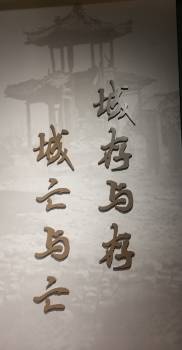 城存与存
城亡与亡